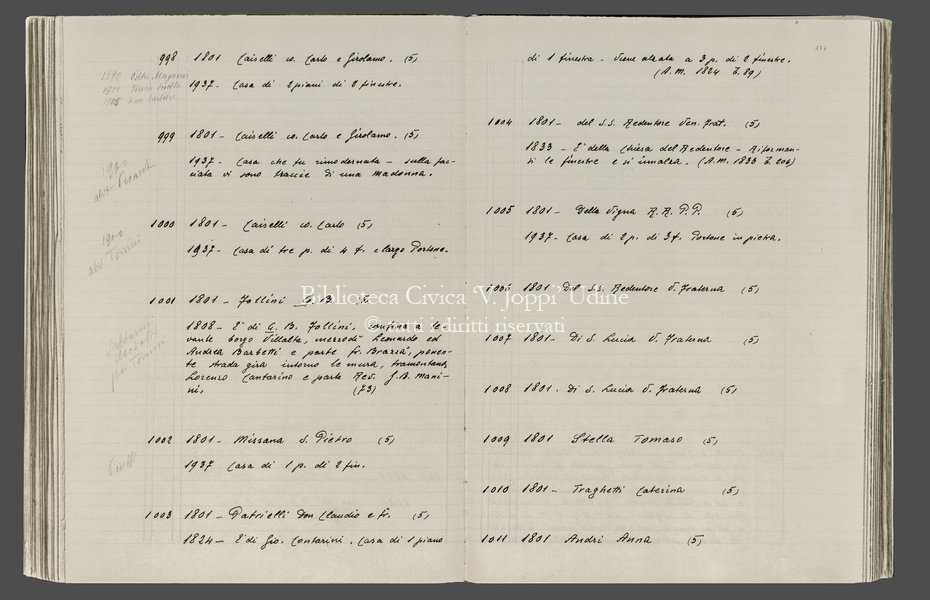 998 1801 Caiselli co. Carlo e Girolamo. (5)
1937- Casa di 2 piani di 2 finestre.
999 1801- Caiselli co. Carlo e Girolamo. (5)
1937- Casa che fu rimodernata - sulla fac-
ciata vi sono traccie di una Madonna.
1900
abit
1000 1801- Caiselli co. Carlo (5)
1937- Casa di tre p. di 4 f. e largo Portone.
1900
abit Tonini
1001 1801- Follini G. B. (5)
1808- E' di G. B. Follini, confina a le-
vante borgo Villalta, mezzodì Leonardo ed
Andrea Barbetti e parte fr. Brazzà, ponen-
te strada gira intorno le mura, tramontana
Lorenzo Cantarino e parte Rev. G. B. Mani-
ni. (73)
1002 1801- Missana S. Pietro (5)
1937 Casa di 1 p. di 2 fin.
1003 1801- Patrielli Don Claudio e fr. (5)
1824- E' di Gio. Contarini. Casa di 1 piano
di 1 finestra - Viene alzata a 3 p. di 2 finestre.
(A.M. 1824 Z. 89)
1004 1801- del S.S. Redentore Ven. Frat. (5)
1833- E' della Chiesa del Redentore - Riforman-
si le finestre e si innalza. (A.M. 1833 Z 206)
1005 1801- Della Vigna R. R. P. P. (5)
1937- Casa di 2 p. di 3 f. Portone in pietra.
1006 1801 Del S.S. Redentore V. Fraterna (5)
1007 1801- Di S. Lucia V. Fraterna (5)
1008 1801- Di S. Lucia V. Fraterna (5)
1009 1801 Stella Tomaso (5)
1010 1801- Traghetti Caterina (5)
1011 1801 Andri Anna (5)
Biblioteca Civica 'V. Joppi' Udine
© tutti i diritti riservati